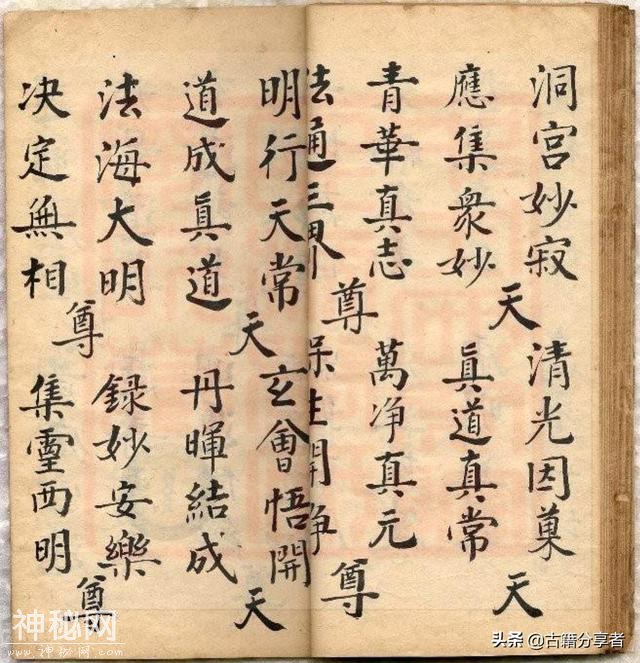 洞宫妙寂 清光因菓
天 天
應集衆妙 眞道真常
青華真志 萬净真元
尊 尊
法通三界 保生開净
明行天常 玄會悟開
天 天
道成眞道 丹暉結成
法海大明 録妙安樂
尊 尊
决定無相 集靈西明
神秘网
WWW.SHENMIWANG.COM
头条 @古籍分享者